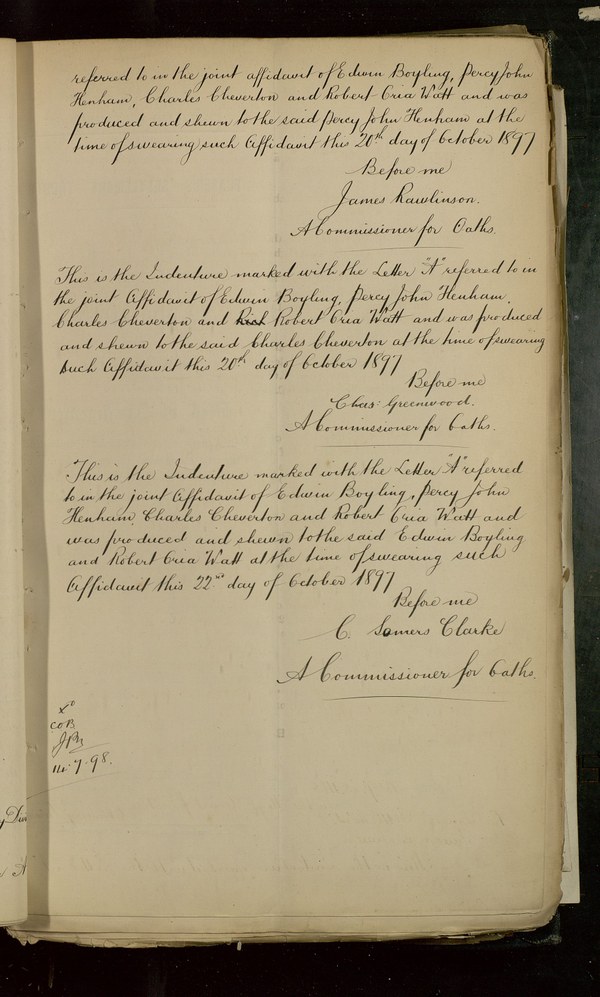 referred to in the joint affidavit of Edwin Boyling, Percy John
Henham, Charles Cheverton and Robert Oria Watt and was
produced and shewn to the said Percy John Henham at the
time of swearing such Affidavit this 20th day of October 1897
Before me
James Rawlinson.
A Commissioner for Oaths.
This is the Indenture marked with the Letter "A" referred to in
the joint Affidavit of Edwin Boyling, Percy John Henham,
Charles Cheverton and Robert Oria Watt and was produced
and shewn to the said Charles Cheverton at the time of swearing
Such Affidavit this 20th day of October 1897
Before me
Chas: Greenwood.
A Commissioner for Oaths.
This is the Indenture marked with the Letter "A" referred
to in the joint Affidavit of Edwin Boyling, Percy John
Henham, Charles Cheverton and Robert Oria Watt and
was produced and shewn to the said Edwin Boyling
and Robert Oria Watt at the time of swearing such
Affidavit this 22nd day of October 1897
Before me
C. Somers Clarke
A Commissioner for Oaths.
COB
7.98.